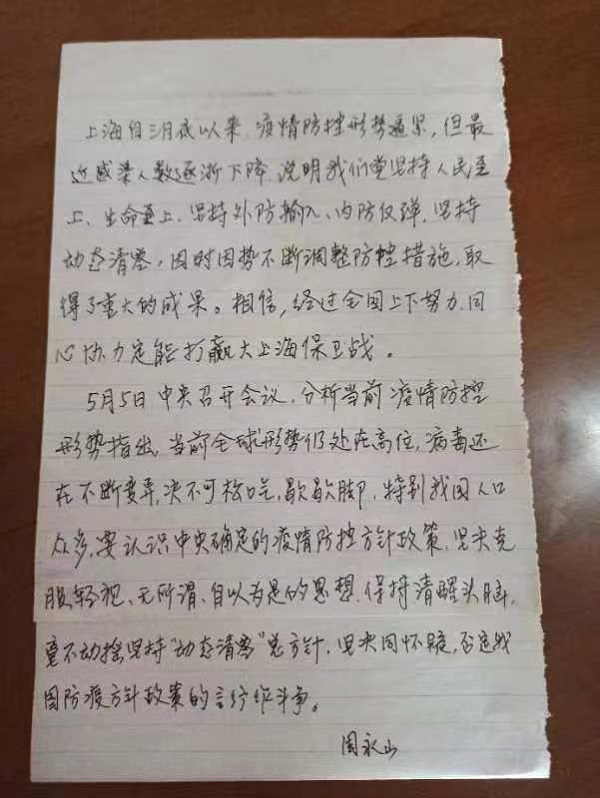 上海自三月底以来,疫情防控形势逼紧,但最
近感染人数逐渐下降,说明我们党坚持人民至
上、生命至上,坚持外防输入、内防反弹,坚持
动态清零,因时因势不断调整防控措施,取
得了重大的成果。相信,经过全国上下努力,同
心协力定能打赢大上海保卫战。
5月5日中央召开会议,分析当前疫情防控
形势指出,当前全球形势仍处在高位,病毒还
在不断变异,决不可松口气,歇歇脚,特别我国人口
众多,要认识中央确定的疫情防控方针政策,坚决克
服轻视、无所谓、自以为是的思想,保持清醒头脑,
毫不动摇坚持“动态清零”总方针,坚决同怀疑,否定我
国防疫方针政策的言行作斗争。
周永山